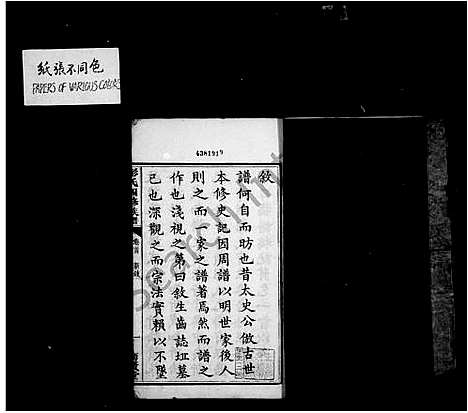 紙張不同色
PAPERS OF VARIOUS COLORS
6381919
敘
譜何自而昉也昔太史公倣古世
本修史記因周譜以明世家後人
則之而一家之譜著焉然而譜之
作也淺視之第曰敘生齒誌坵墓
已也深觀之而宗法實賴以不墜
卷首
一